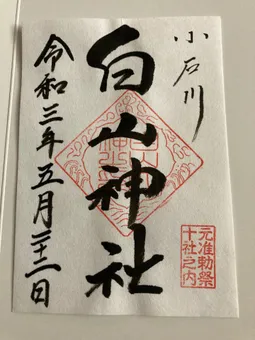 小石川
白山神社
令和三年五月二十二日
元准勅祭
十社之内